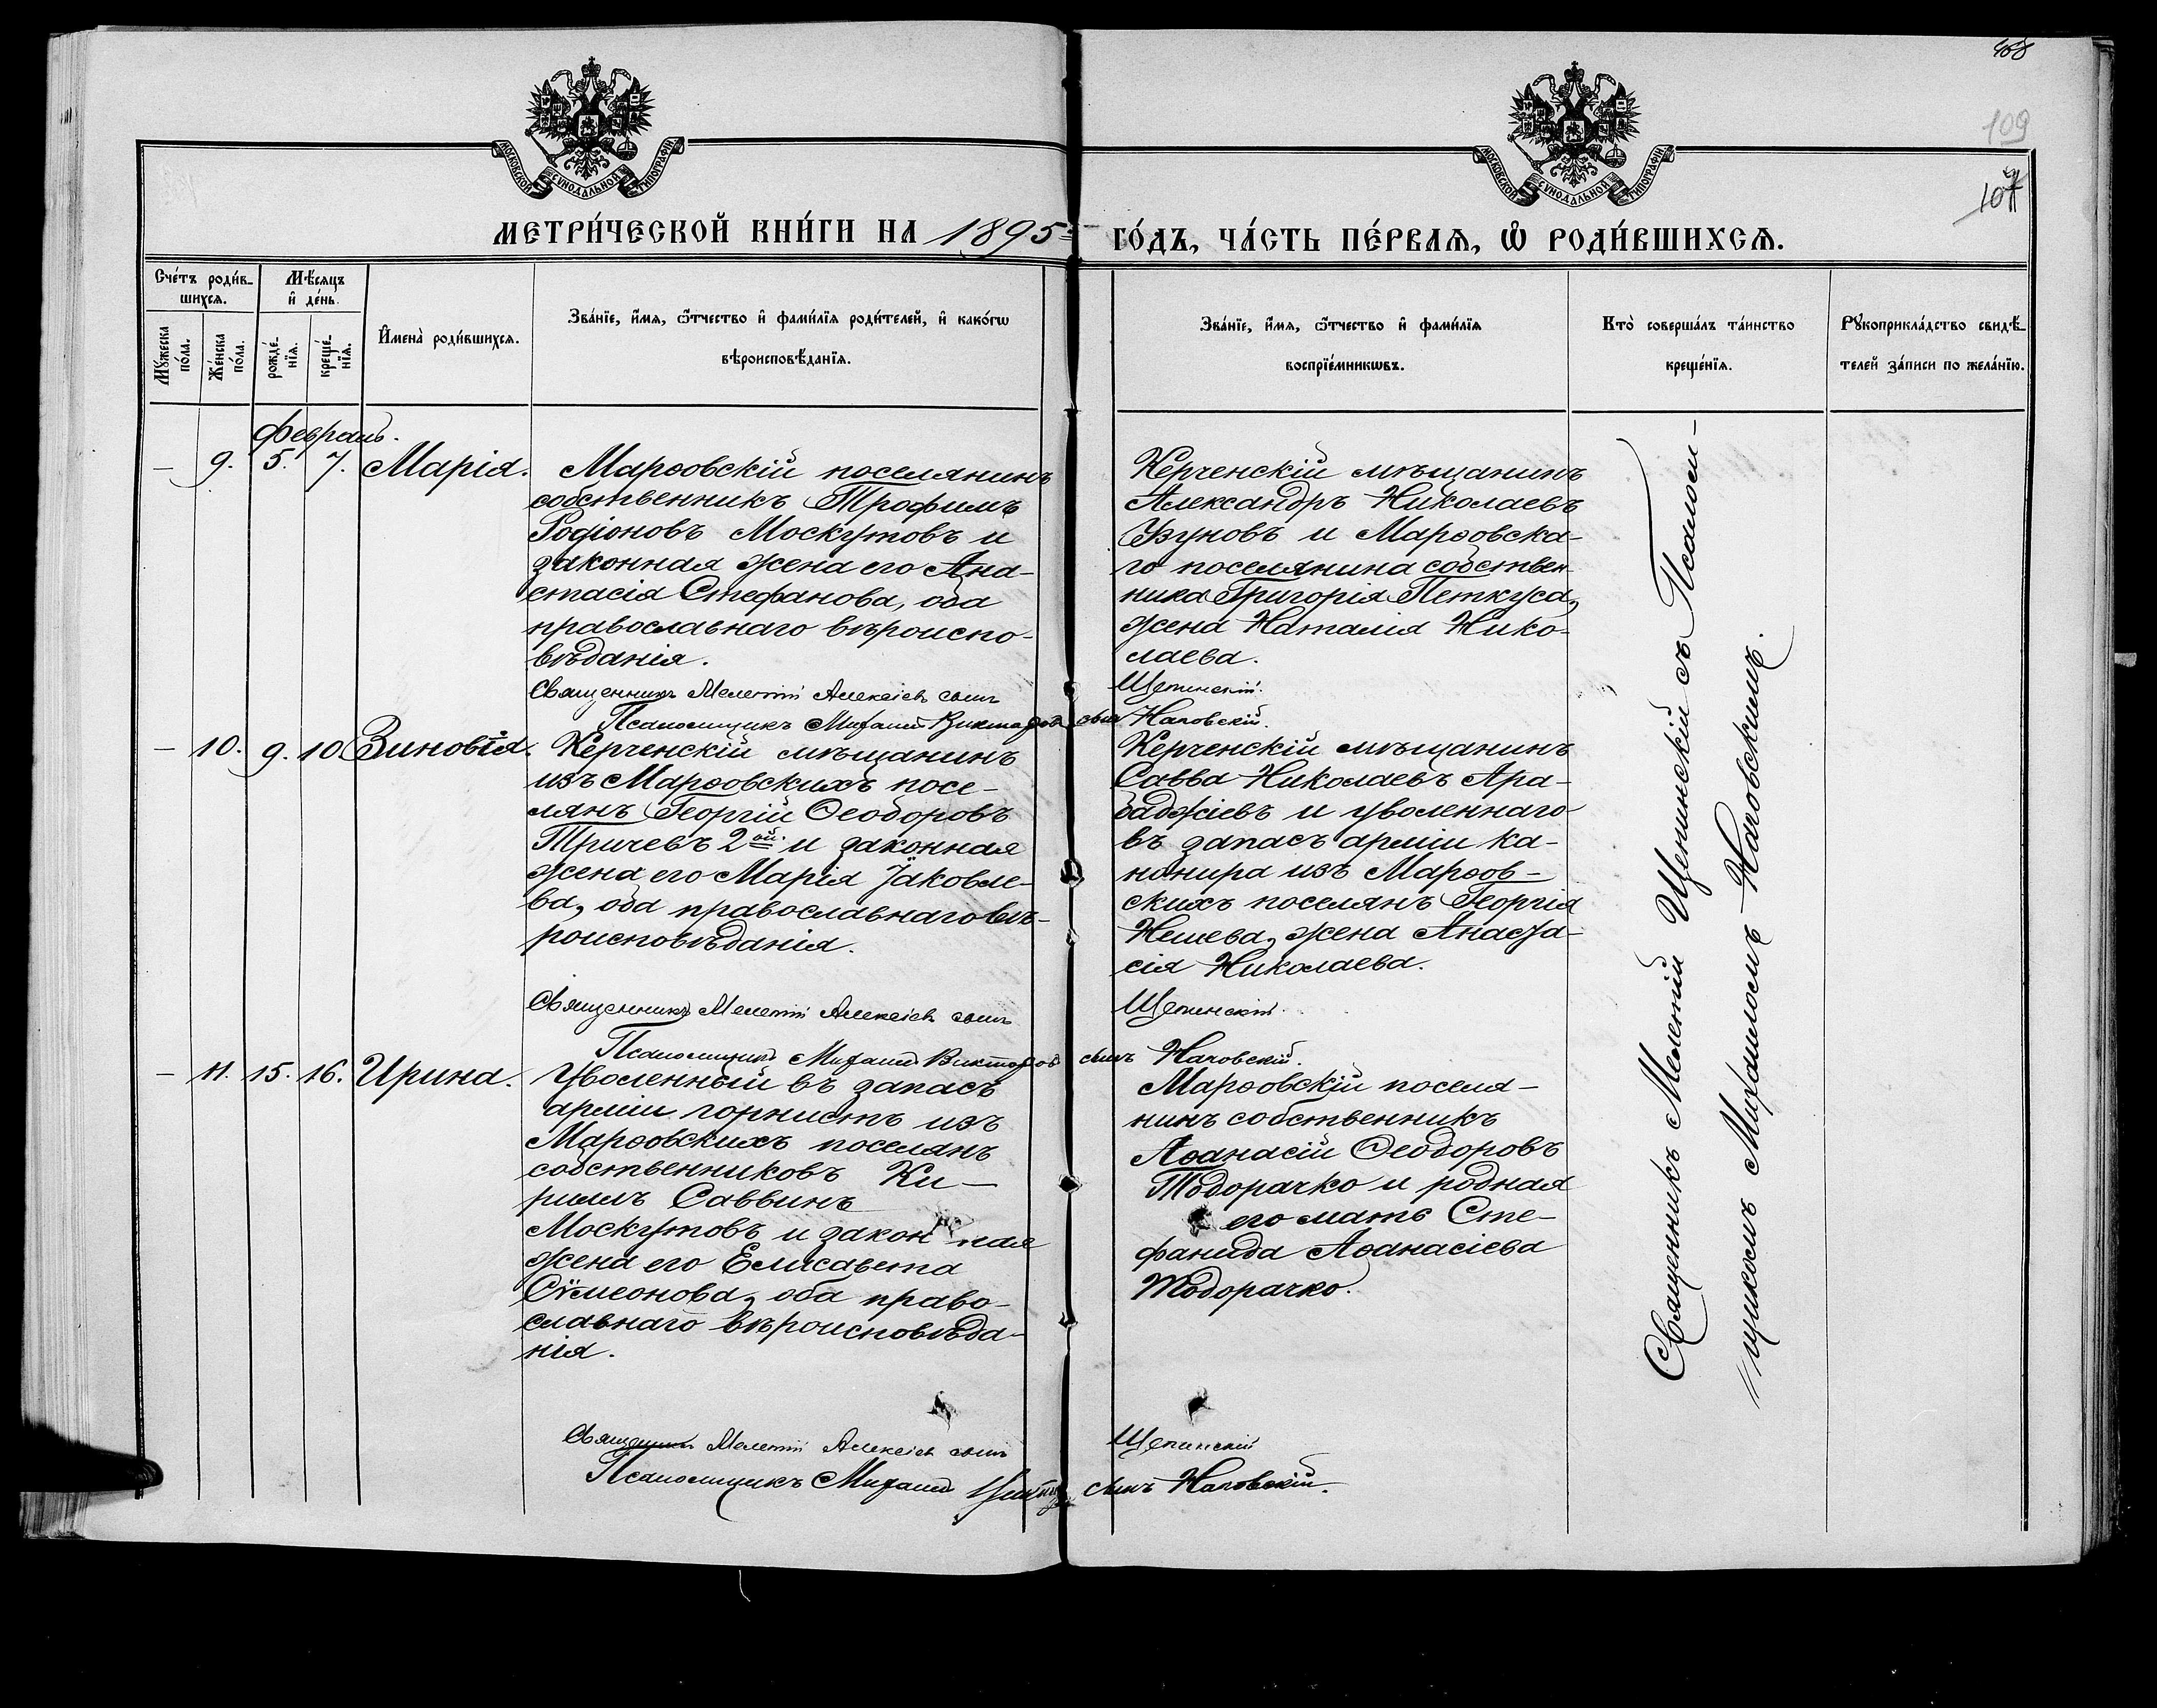 108
109
107
МОСКОВСКОЙ СѴНОДАЛЬНОЙ ТИПОГРАФІИ
МОСКОВСКОЙ СѴНОДАЛЬНОЙ ТИПОГРАФІИ
МЕТРИ́ЧЕСКОЙ КНИ́ГИ НА 1895й ГО́ДЪ, ЧА́СТЬ ПЕ́РВАѦ, Ѡ҆ РОДИ́ВШИХСѦ.
Сче́тъ роди́в-
шихсѧ.
Мѣ́сѧцъ
и҆ де́нь.
Мꙋ́жеска
по́ла.
Же́нска
по́ла.
рожде́-
нїѧ.
креще́-
нїѧ.
И҆мена̀ роди́вшихсѧ.
Зва́нїе, и҆́мѧ, ѻ҆́тчество и҆ фами́лїѧ роди́телей, и҆ како́гѡ
вѣроисповѣ́данїѧ.
Зва́нїе, и҆́мѧ, ѻ҆́тчество и҆ фами́лїѧ
воспрїе́мникѡвъ.
Кто̀ соверша́лъ та́инство
креще́нїѧ.
Рꙋкоприкла́дство свидѣ́-
телей за́писи по жела́нїю.
Февраль.
— 9. 5. 7. Марія.
Марѳовскій поселянинъ
собственникъ Трофимъ
Родіоновъ Москутовъ и
законная жена его Ана-
стасія Стефанова, оба
православнаго вѣроиспо-
вѣданія.
Керченскій мѣщанинъ
Александръ Николаевъ
Узуновъ и Марѳовска-
го поселянина собствен
ника Григорія Петкуса,
жена Наталія Нико-
лаева.
Священникъ Мелетій Алексіев сынъ Щепинскій.
Псаломщикъ Михаилъ Викторовъ сынъ Наговскій.
— 10. 9. 10. Зиновія.
Керченскій мѣщанинъ
изъ Марѳовскихъ посе-
лянъ Георгій Ѳеодоровъ
Тричевъ 2ой и законная
жена его Марія Іаковле-
ва, оба православнаго вѣ-
роисповѣданія.
Керченскій мѣщанинъ
Савва Николаевъ Ара-
баджіевъ и уволеннаго
въ запасъ арміи ка-
нонира изъ Марѳов-
скихъ поселянъ Георгія
Нешева, жена Анаста-
сія Николаева.
Священникъ Мелетій Алексіев сынъ Щепинскій.
Псаломщикъ Михаилъ Викторовъ сынъ Наговскій.
— 11. 15. 16. Ирина.
Уволенный въ запасъ
арміи горнистъ изъ
Марѳовскихъ поселянъ
собственниковъ Ки-
риллъ Саввинъ
Москутовъ и закон ная
жена его Елисавета
Сѵмеонова, оба право-
славнаго вѣроисповѣда-
нія.
Марѳовскій поселя-
нинъ собственникъ
Аѳанасій Ѳеодоровъ
Тодорачко и родная
его мать Сте-
фанида Аѳанасіева
Тодорачко.
Священникъ Мелетій Алексіев сынъ Щепинскій
Псаломщикъ Михаилъ сынъ Наговскій.
Священникъ Мелетій Щепинскій съ Псалом-
щикомъ Михаиломъ Наговскимъ.